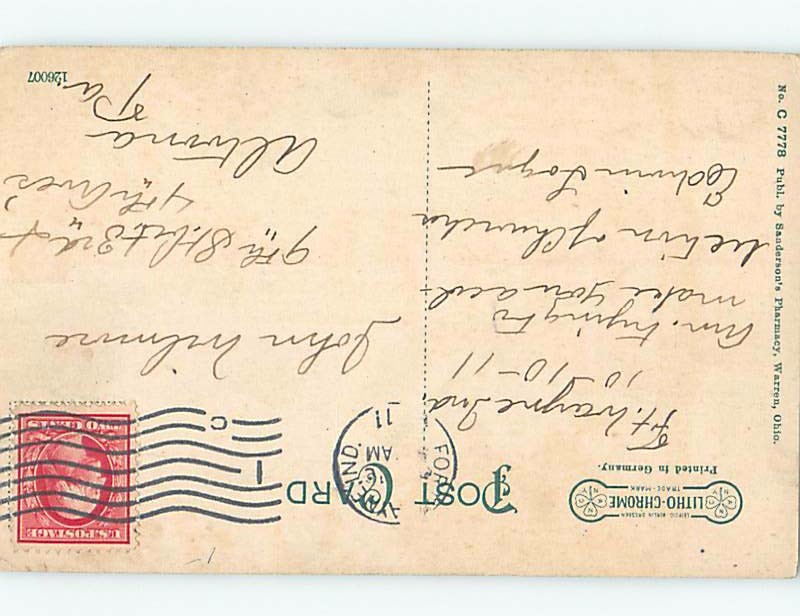 LITHO-CHROME
TRADE-MARK
LEIPZIG-BERLIN-DRESDEN
Printed in Germany.
POST CARD
FORT
WAYNE, IND.
AM
11
1
C
U.S. POSTAGE
TWO CENTS
Ft. Wayne Ind.
10-10-11
Am. trying to
make you a col-
lection of churches
Edwin Logue
John Wilmore
9th St. bet. 3rd &
4th Aves
Altoona
Pa.
No. C 7778 Publ. by Sanderson's Pharmacy, Warren, Ohio.
126007